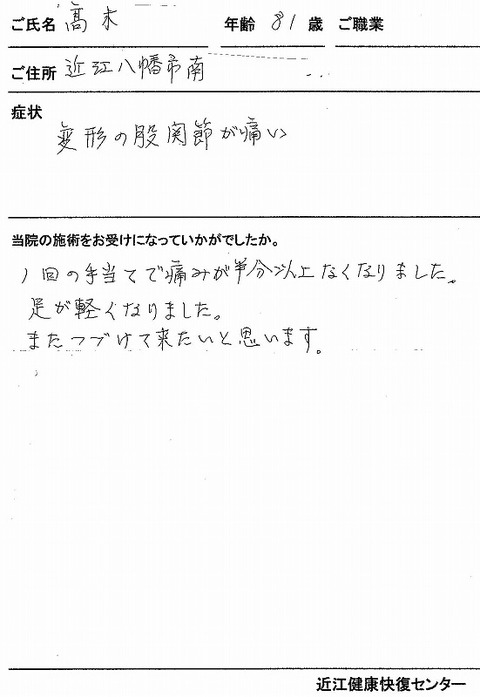 ご氏名 髙木 年齢 81 歳 ご職業
ご住所 近江八幡市南
症状
変形の股関節が痛い
当院の施術をお受けになっていかがでしたか。
1回の手当てで痛みが半分以上なくなりました。
足が軽くなりました。
またつづけて来たいと思います。
近江健康快復センター